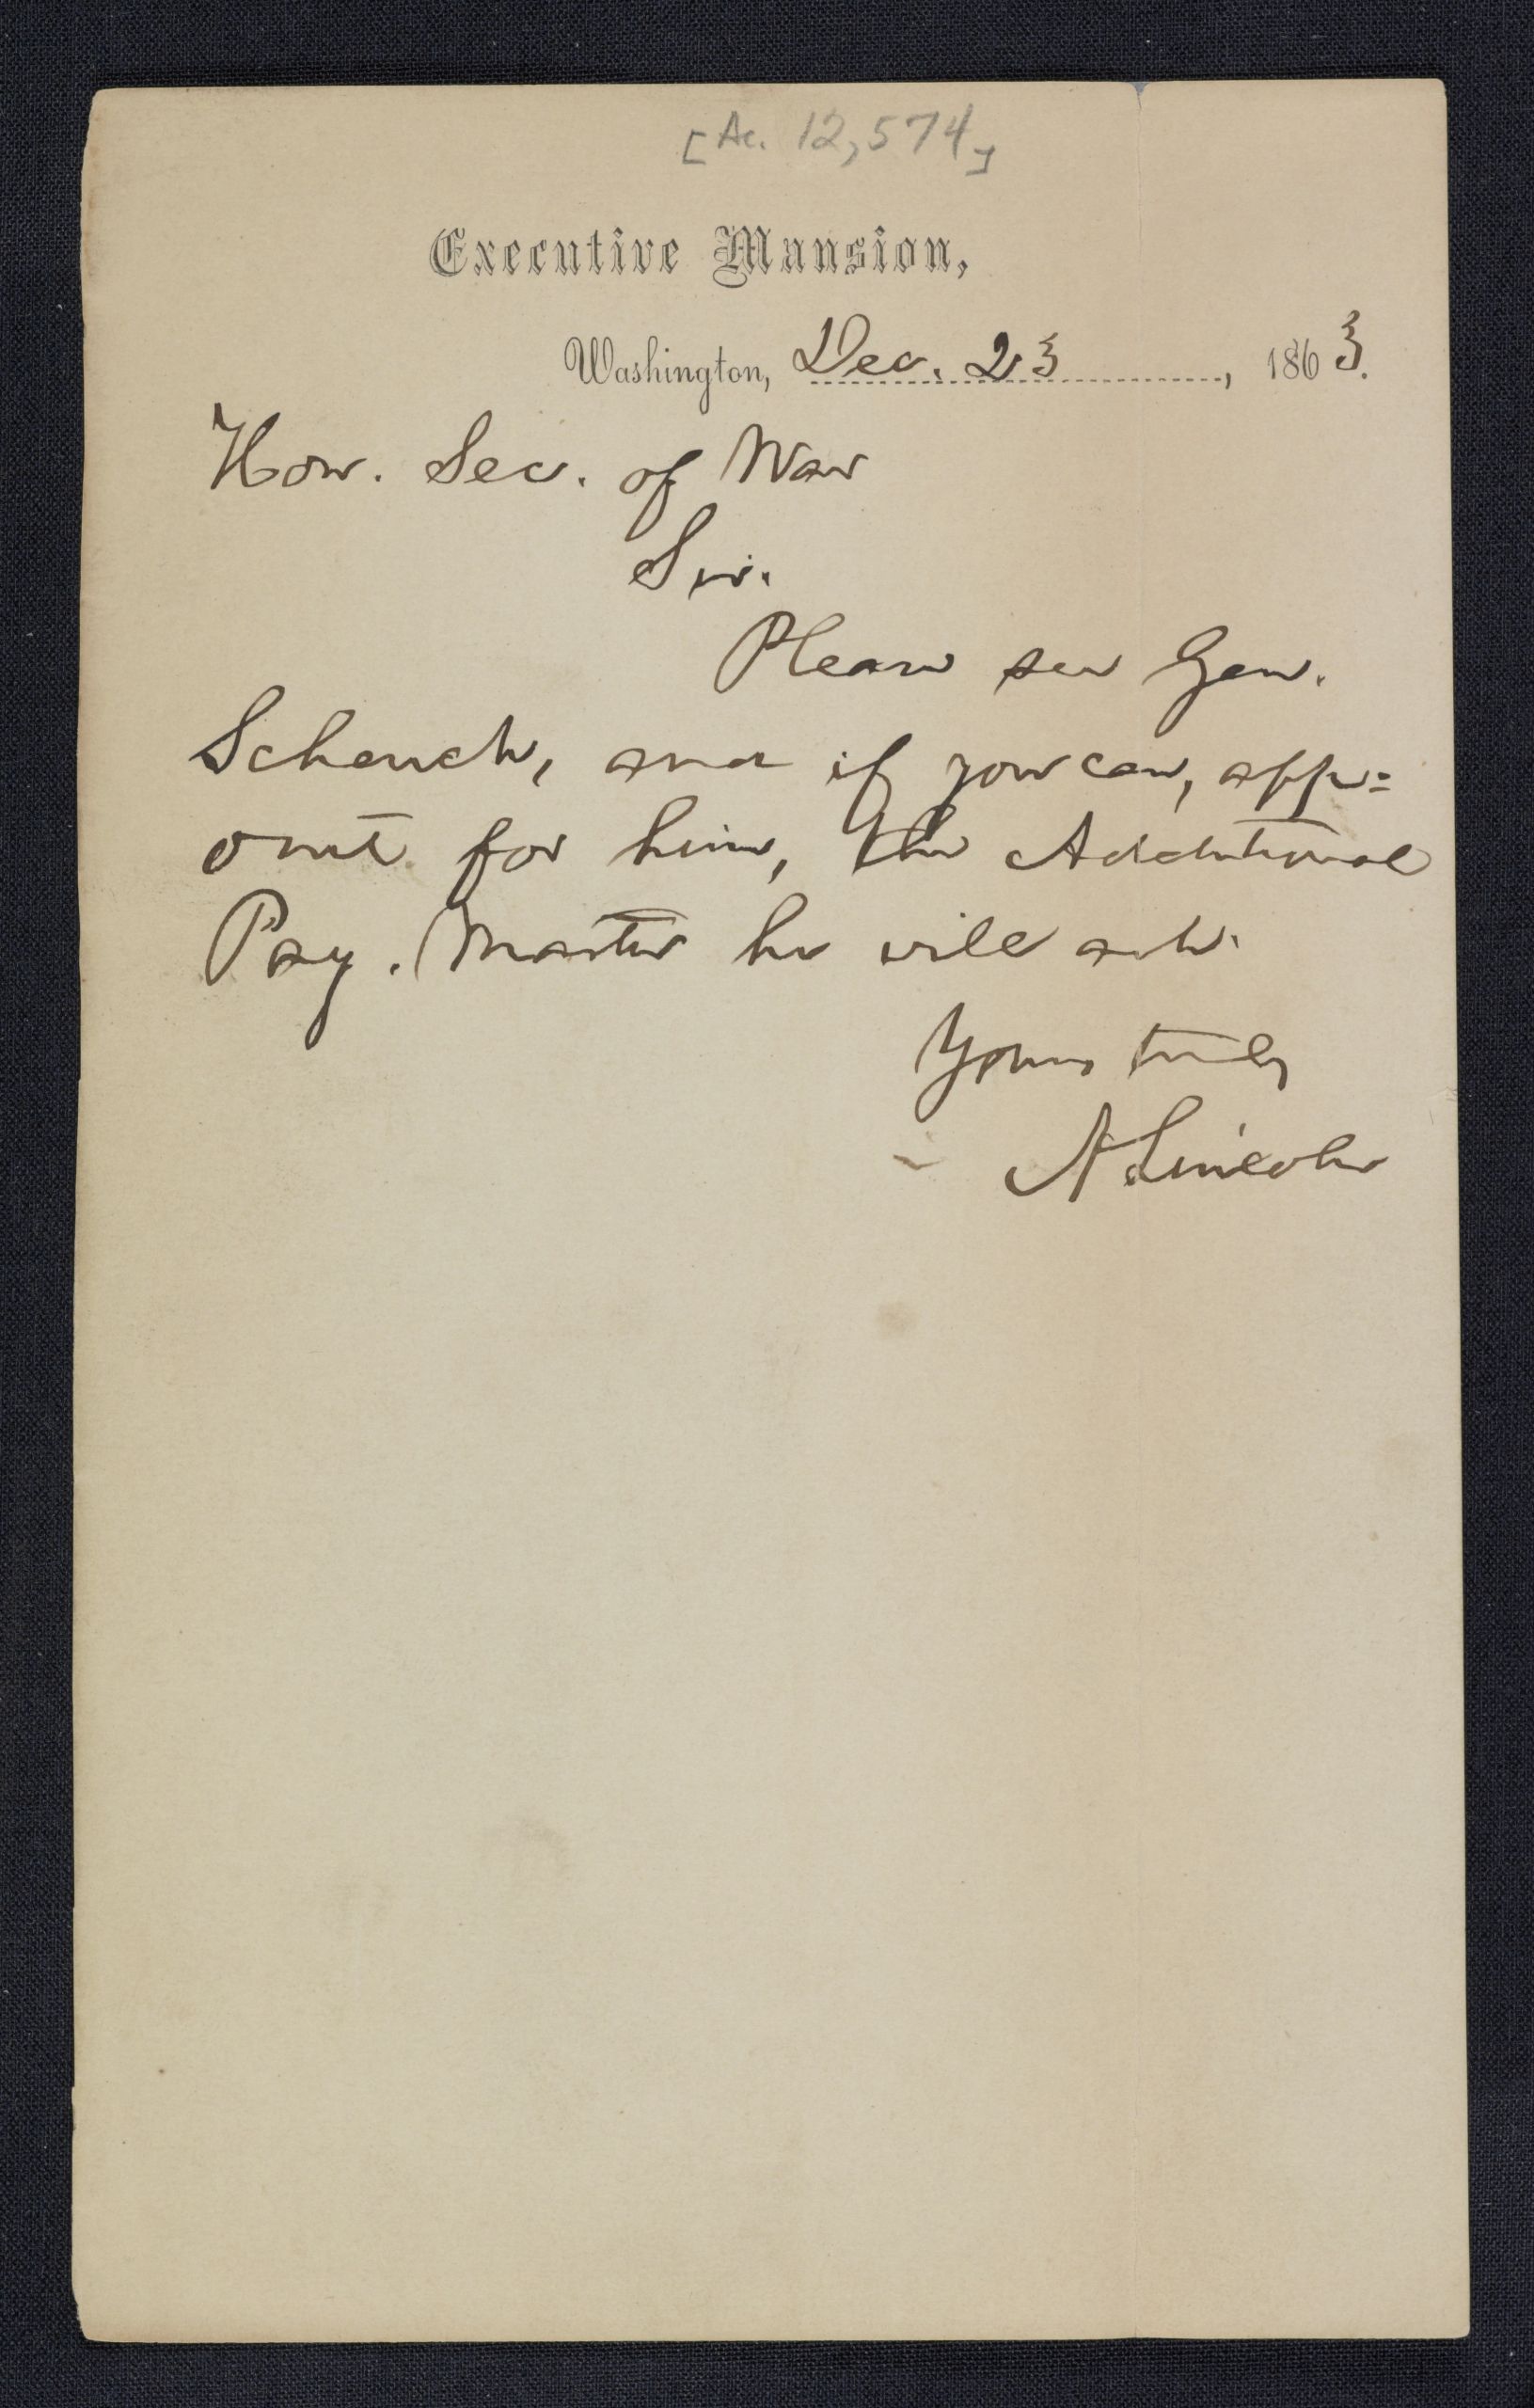 [Ac. 12,574]
Executive Mansion,
Washington, Dec. 23, 1863.
Hon. Sec. of War
Sir.
Please see Gen.
Schenck, and if you can, app-
oint for him, the Additional
Pay. Master he will ask.
Yours truly
A. Lincoln